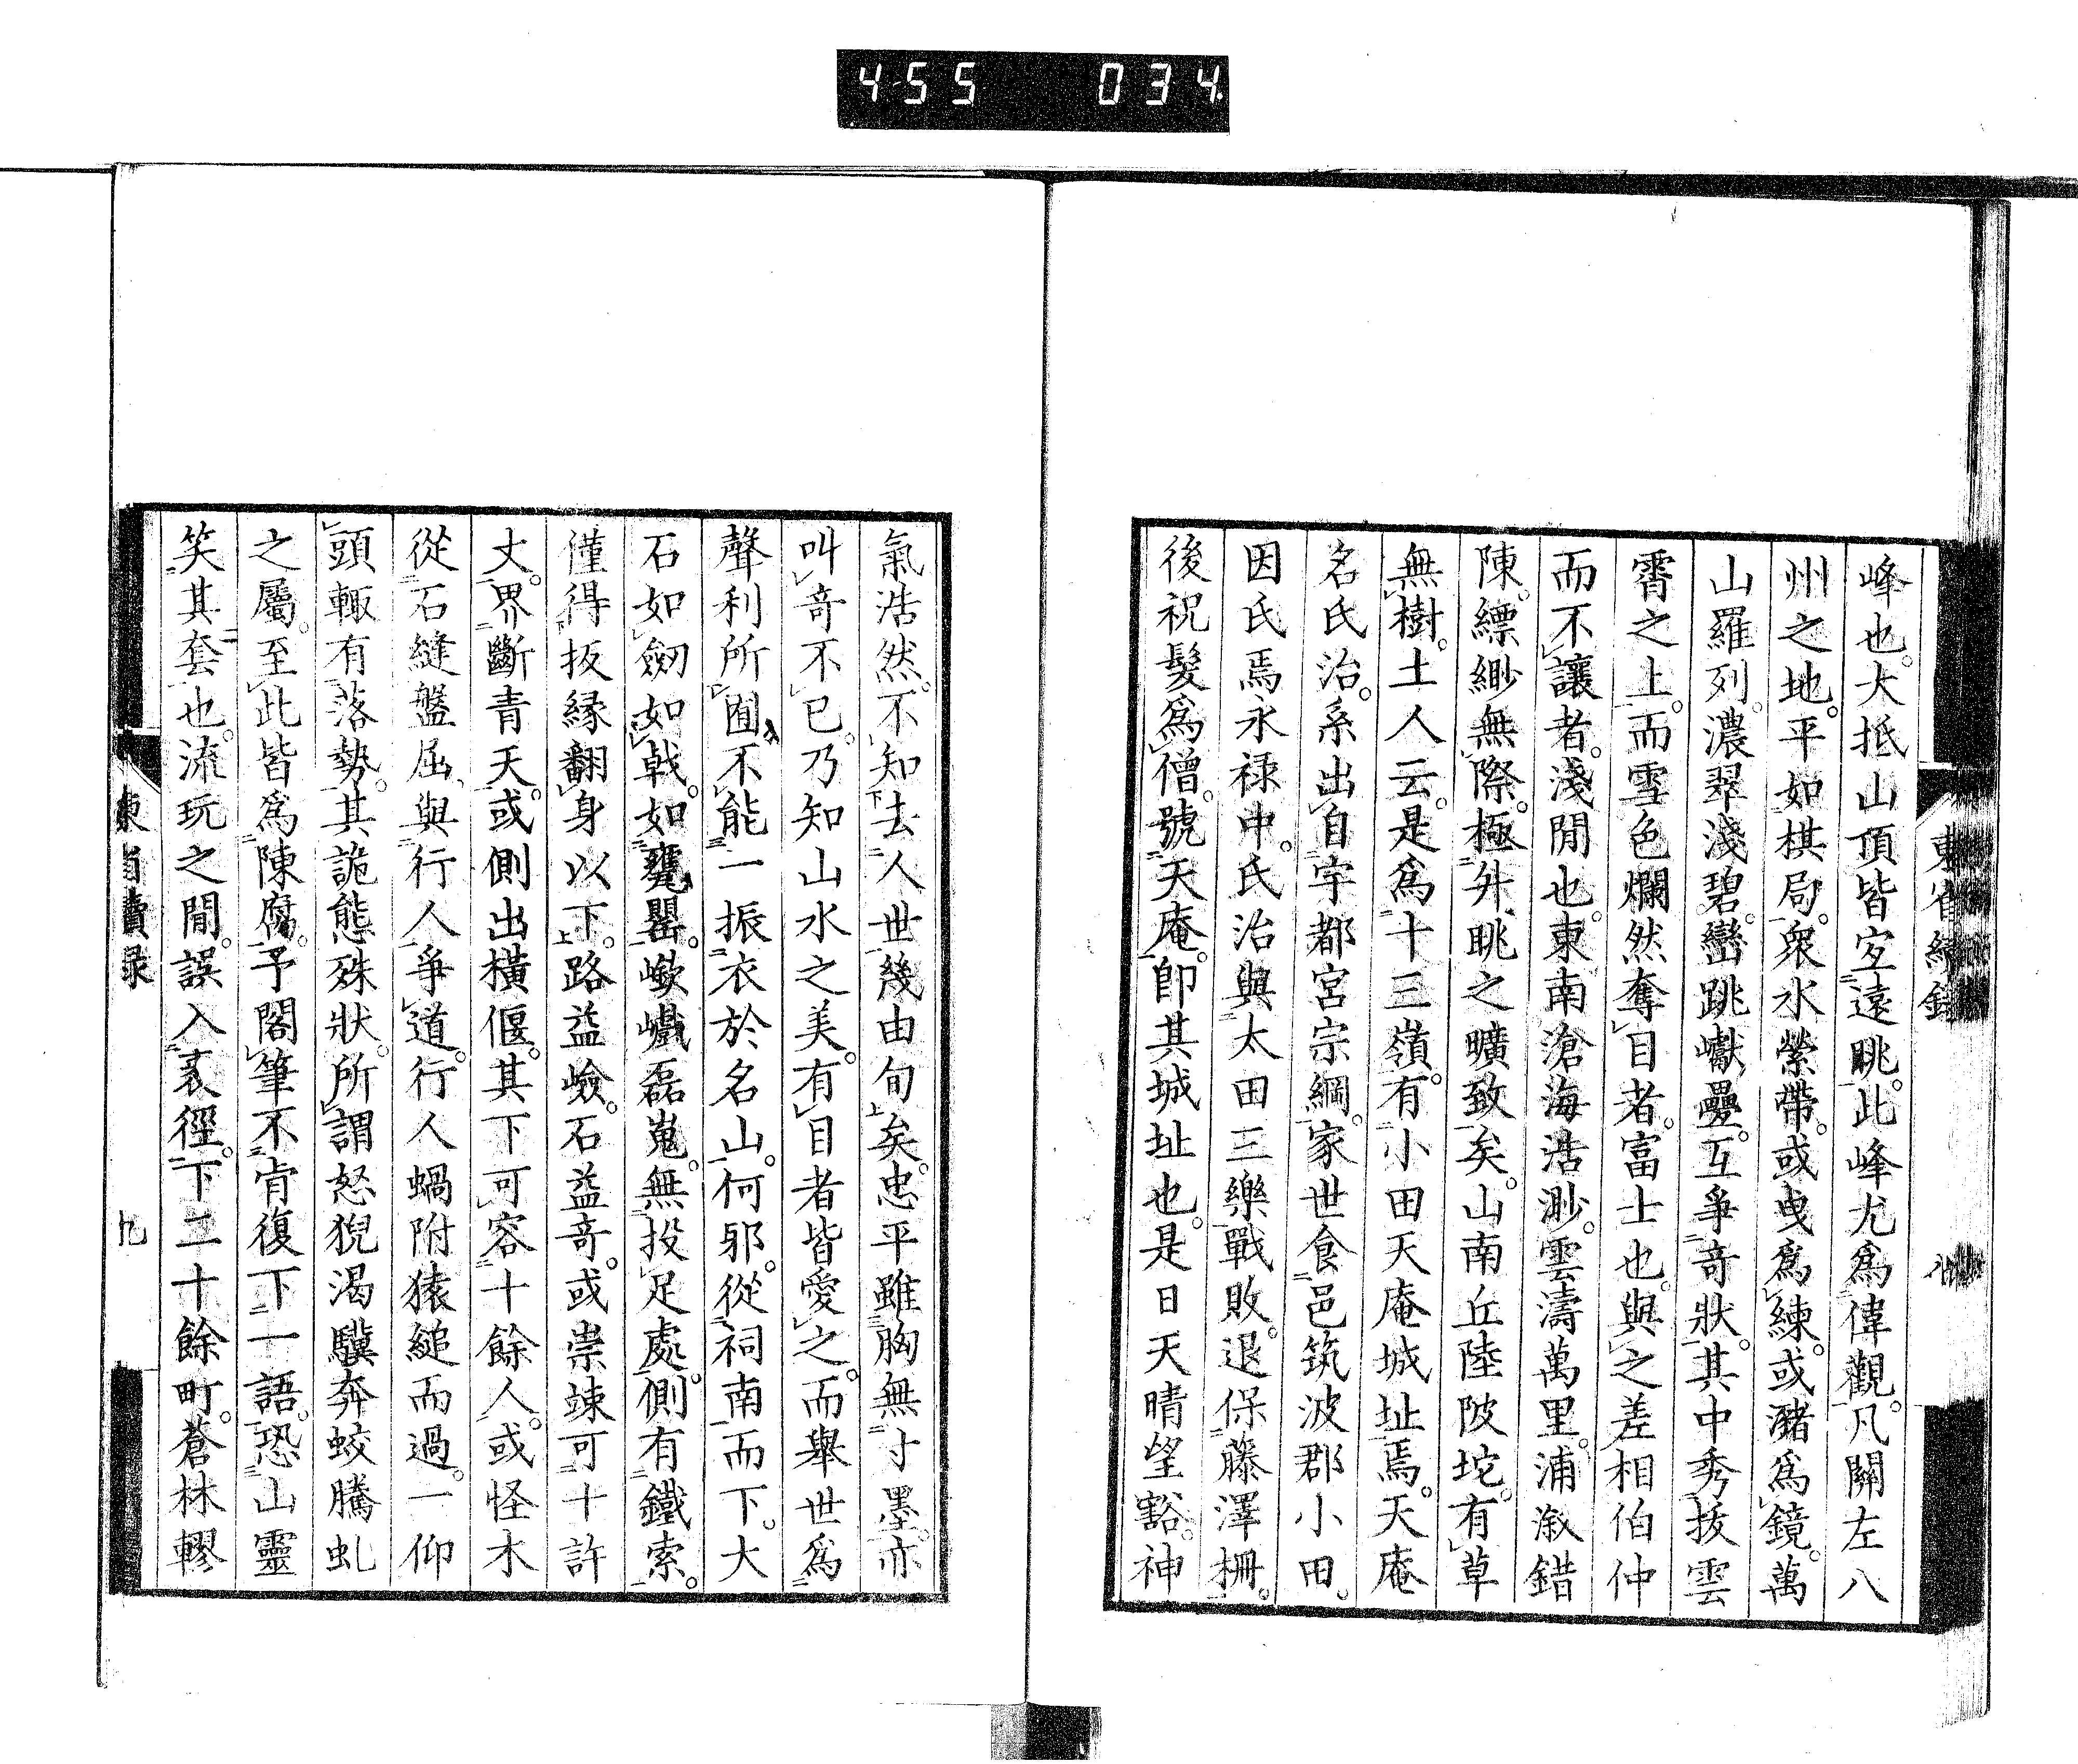 455 034
峰也。大抵山頂皆宜遠眺。此峰尤爲偉觀。凡關左八
州之地。平如棋局。衆水縈帶。或曳爲練。或瀦爲鏡。萬
山羅列。濃翠淺碧。巒跳巘疊。互爭奇狀。其中秀拔雲
霄之上。而雪色爛然奪目者。富士也。與之差相伯仲
而不讓者。淺間也。東南滄海浩渺。雲濤萬里。浦漵錯
陳。縹緲無際。極舛眺之曠致矣。山南丘陸陂坨。有草
無樹。土人云。是爲十三嶺。有小田天庵城址焉。天庵
名氏治。系出自宇都宮宗綱。家世食邑筑波郡小田。
因氏焉永禄中。氏治與太田三樂戰敗。退保藤澤柵。
後祝髮爲僧。號天庵。卽其城址也。是日天晴望豁。神
氣浩然。不知去人世幾由旬矣。忠平雖胸無寸墨。亦
叫奇不已。乃知山水之美。有目者皆愛之。而舉世爲
聲利所囿。不能一振衣於名山。何邪。從祠南而下。大
石如劒如戟。如甕罌。嶔巇磊嵬。無投足處。側有鐵索。
僅得扳縁翻身以下。路益嶮。石益奇。或崇竦可十許
丈。界斷青天。或側出橫偃。其下可容十餘人。或怪木
從石縫盤屈。與行人爭道。行人蝸附猿縋而過。一仰
頭輙有落勢。其詭態殊狀。所謂怒猊渴驥奔蛟騰虬
之屬。至此皆爲陳腐。予閣筆不肯復下一語。恐山靈
笑其套也。流玩之間。誤入袤徑。下二十餘町。蒼林轇
九